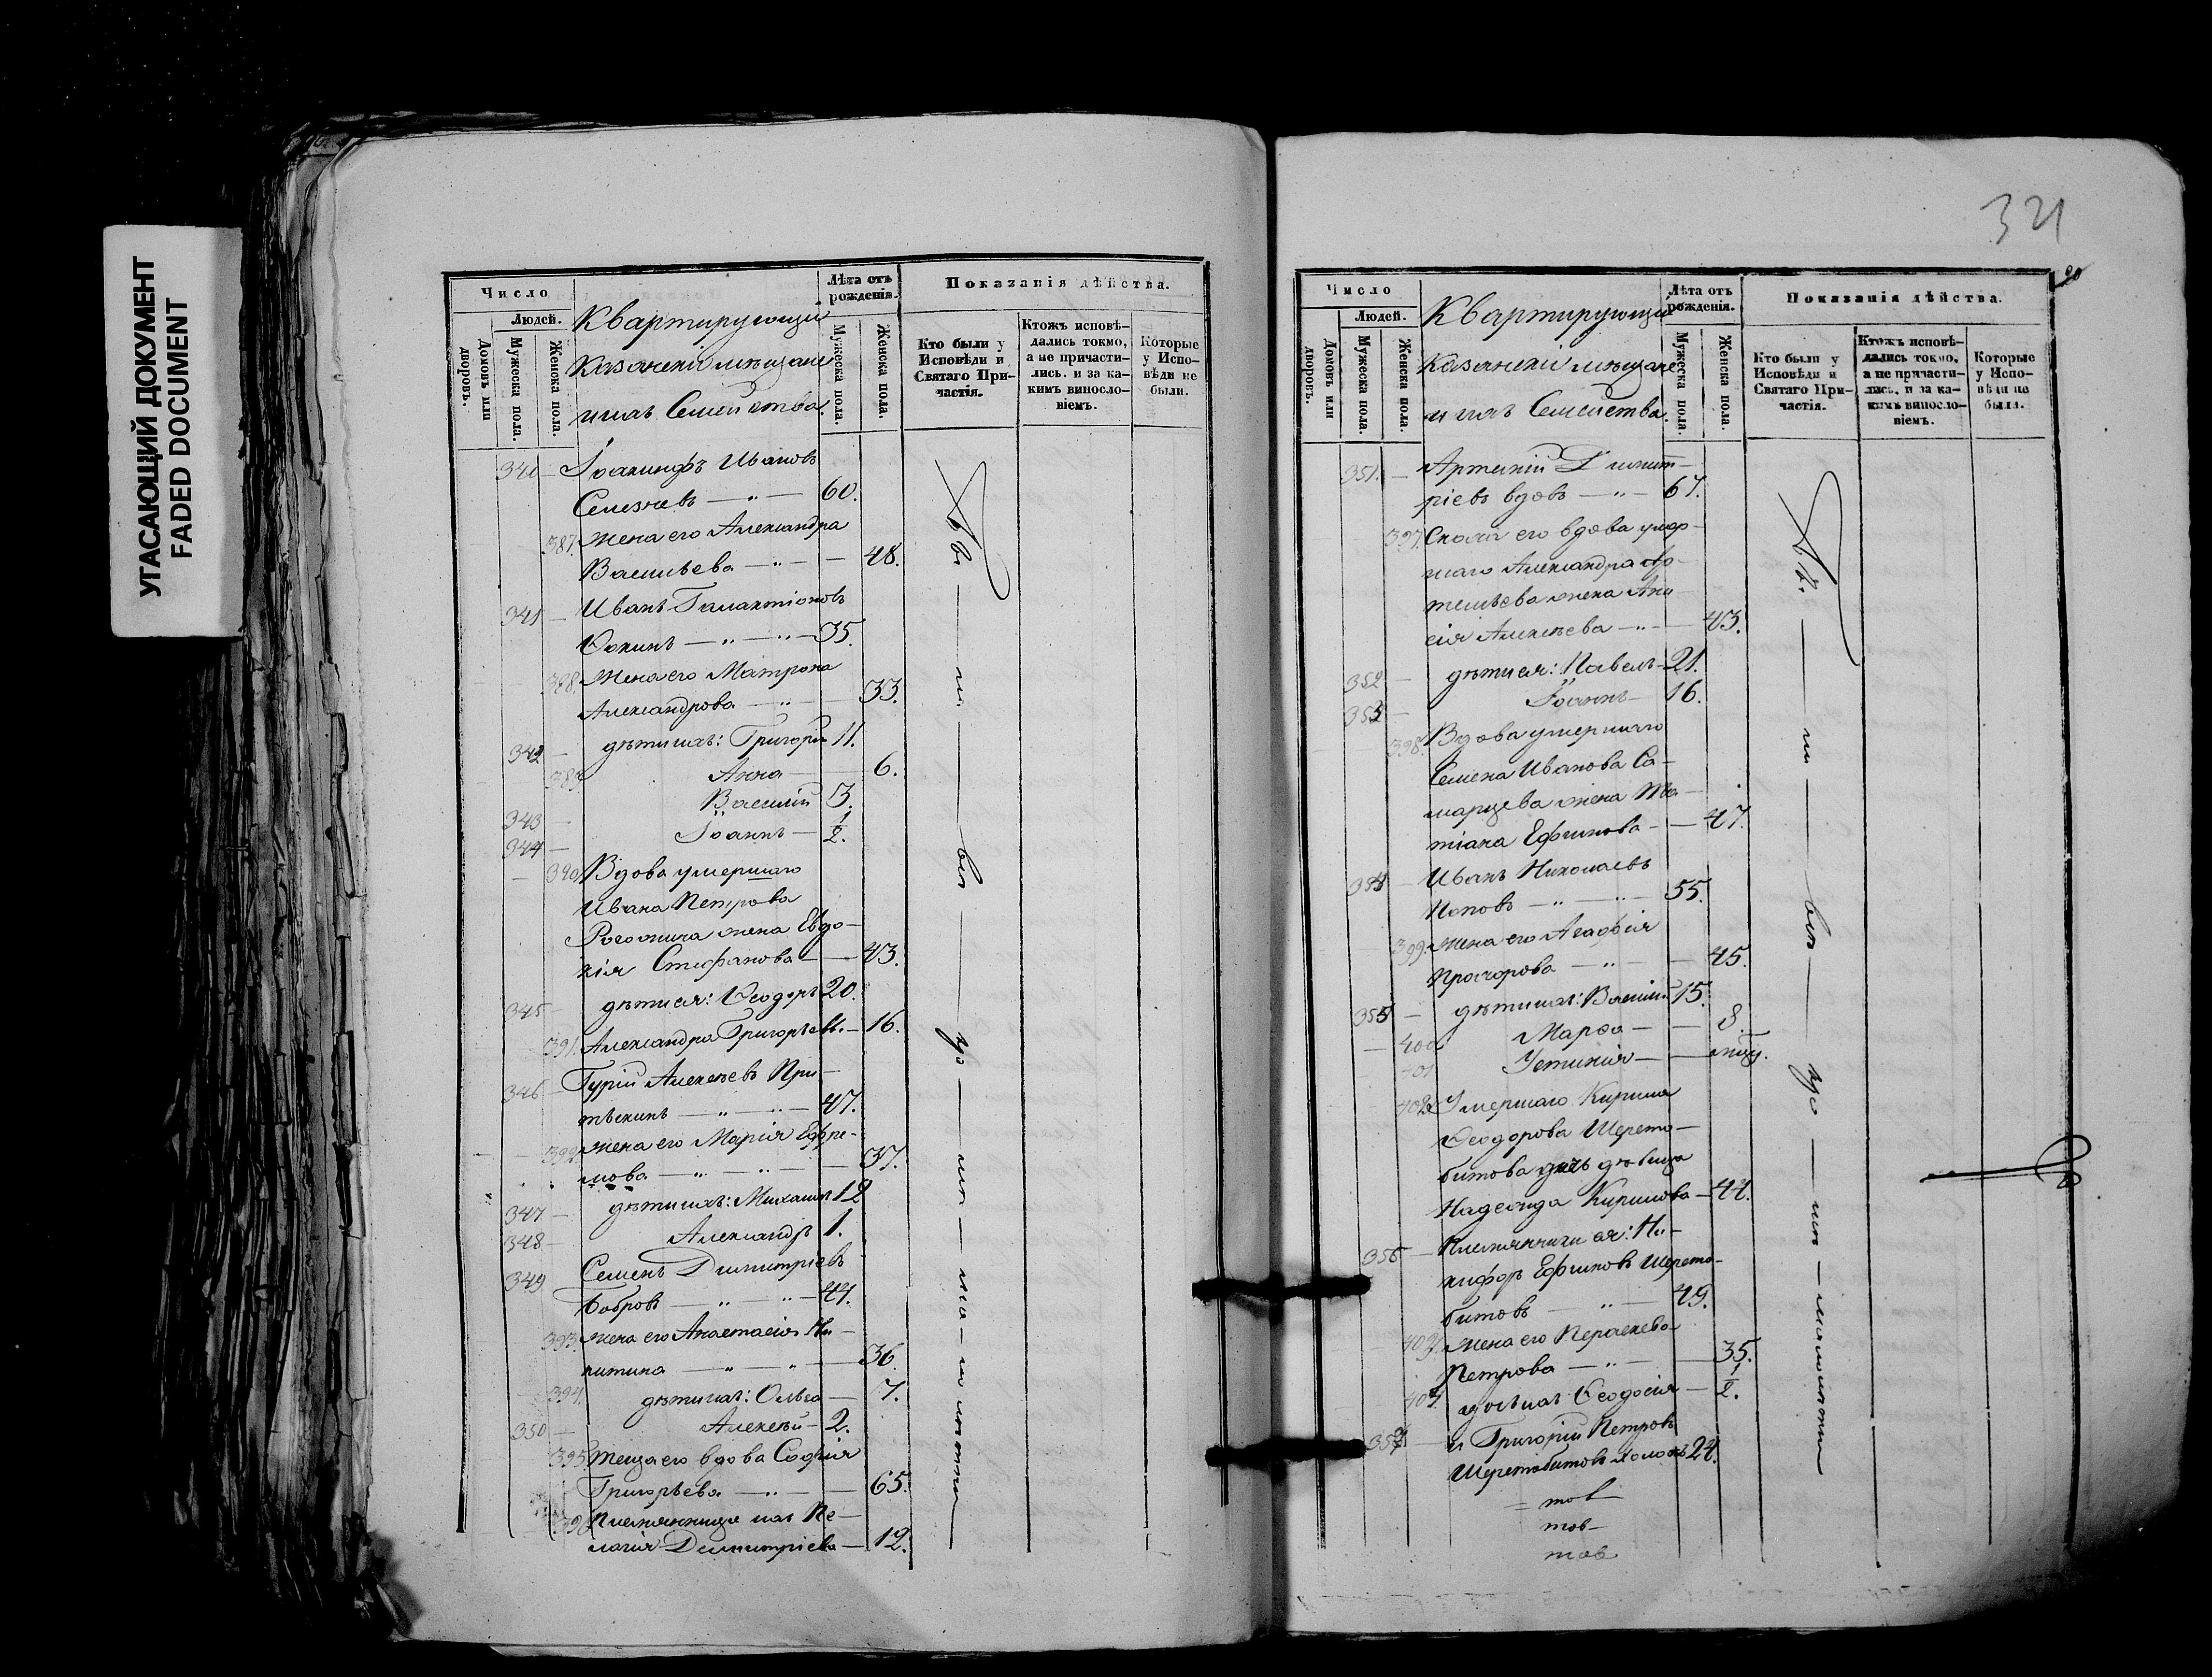 УГАСАЮЩИЙ ДОКУМЕНТ
FADED DOCUMENT
Число
Людей.
Домовъ или дворовъ.
Мужеска пола.
Женска пола.
Квартирующіи
Казанскіи мѣщане
и ихъ Семейства.
Лѣта отъ рожденія.
Мужеска пола.
Женска пола.
Показанія дѣйства.
Кто были у Исповѣди и Святаго Причастія.
Ктожъ исповѣдались токмо, а не причастились, и за какимъ винословіемъ.
Которые у Исповѣди не были.
340 — Іоакинфъ Ивановъ
Селезневъ — " — 60.
387. Жена его Александра
Васильева — " — — 48.
341 — Иванъ Галактіоновъ
— " — " — 35.
388. Жена его Матрона
Александрова — " — 33.
342 — дѣти ихъ: Григорій 11.
389 Анна — 6.
343 — Василій 3.
344 — Іоаннъ — 1/2.
— 390 Вдова умершаго
Ивана Петрова
жена Евдо-
кія Стефанова — — 43.
345 — дѣти ея: Ѳеодоръ 20.
391. Александра Григорьев. — 16.
346 — Гурій Алексѣевъ При-
— " — " — 47.
392 жена его Марія Ефре-
мова — " — " — 37.
347 — дѣти ихъ: Михаилъ 12
348 — Александръ 1.
349 Семенъ Димитріевъ
Бобровъ — " — " — 44.
393. жена его Анастасія Ни-
китина — " — " — 36.
394. дѣти ихъ: Ольга — 7.
350 — Алексѣй — 2.
395 теща его вдова Софія
Григорьева — " — — 65.
396 Племянница ихъ Пе-
лагія Димитріева — 12.
321
Число
Людей.
Домовъ или дворовъ.
Мужеска пола.
Женска пола.
Квартирующіи
Казанскіи мѣщане
и ихъ Семейства
Лѣта отъ рожденія.
Мужеска пола.
Женска пола.
Показанія дѣйства.
Кто были у Исповѣди и Святаго Причастія.
Ктожъ исповѣдались токмо, а не причастились, и за какимъ винословіемъ.
Которые у Исповѣди не были.
351. — Артемій Димит-
ріевъ вдовъ — " — 67.
397. Сноха его вдова умер-
шаго Александра Ар-
темьева жена Ани-
сія Алексѣева — " — 43.
352 — дѣти ея: Павелъ — 21.
353 — Іоаннъ — 16.
398. Вдова умершаго
Семена Иванова Са-
марцева жена Та-
тіана Ефимова — — 47.
354 — Иванъ Николаевъ
Поповъ — " — " — 55.
399. жена его Агафія
Прохорова — " — — 45.
355 — дѣти ихъ: Василій 15.
— 400 Марѳа — — 8.
401 Устинія — —
402 Умершаго Кирила
Ѳеодорова Шерето-
битова дочь дѣвица
Надежда Кирилова — 44.
356 — Племянники ея: Ни-
кифоръ Ефимовъ Шерето-
битовъ — " — 49.
403. жена его Пераскева
Петрова — " — — 35.
404 дочь ихъ Ѳеодосія — 1/2.
357 — и Григорій Петровъ
Шеретобитовъ холостъ 24.